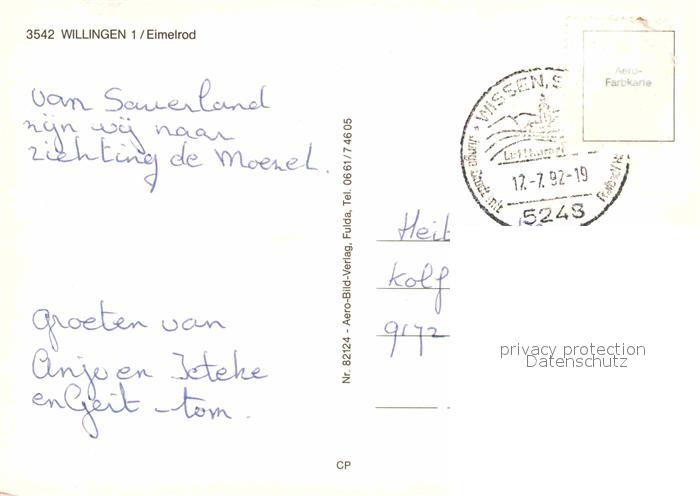 3542 WILLINGEN 1 / Eimelrod
van Sauerland
zijn wij naar
richting de Moezel.
Groeten van
Anja en Ieteke
en Gert-tom.
Nr. 82124 - Aero-Bild-Verlag, Fulda, Tel. 06 61 / 7 46 05
Aero-
Farbkarte
WISSEN, S
Luftkurort
17.-7. 92-19
5248
Heil
Kolf
9172
privacy protection
Datenschutz
CP